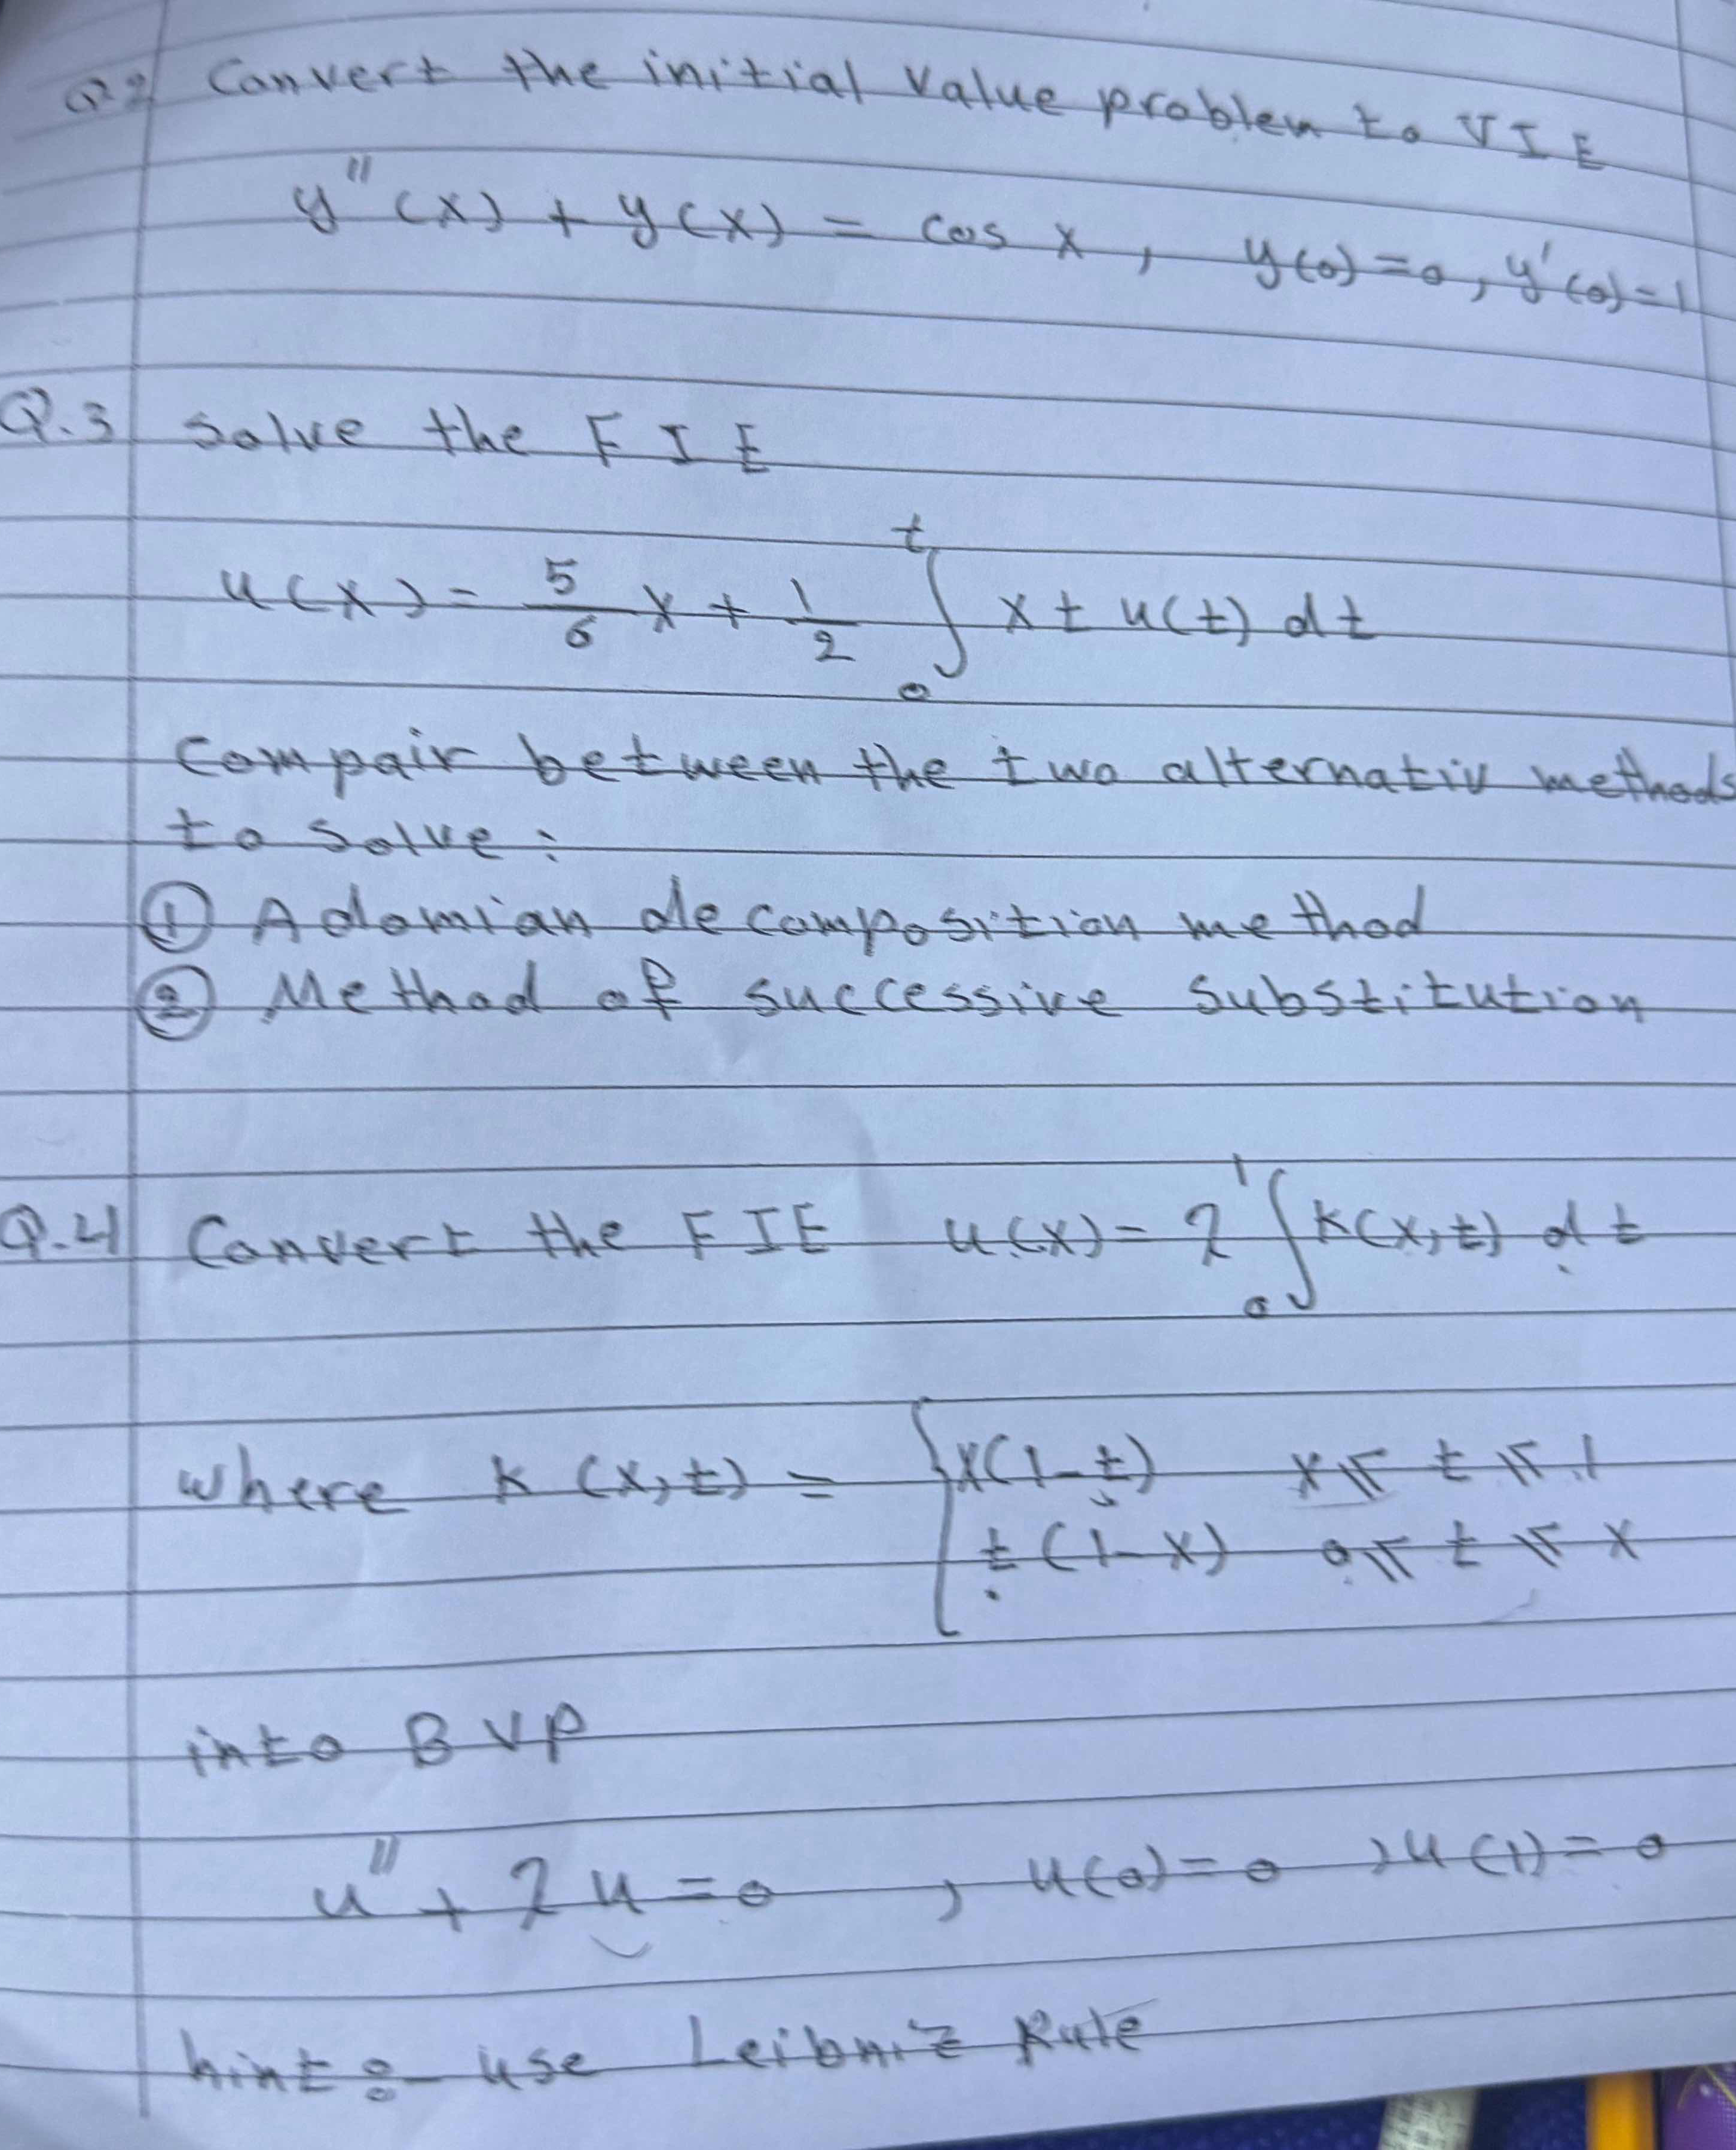 Q2 Convert the initial value problem to VIE
y''(x) + y(x) = cos x, y(0)=0, y'(0)=1
Q.3 Solve the FIE
u(x) = 5/6 x + 1/2 ∫₀ᵗ x t u(t) dt
Compair between the two alternativ methods
to solve:
① Adomian decomposition method
② Method of successive substitution
Q.4 Convert the FIE u(x) = λ ∫₀¹ k(x,t) dt
where k(x,t) = { x(1-t) x ≤ t ≤ 1
t(1-x) 0 ≤ t ≤ x
into BVP
u'' + λu = 0 , u(0) = 0 , u(1) = 0
hint:- use Leibniz Rule